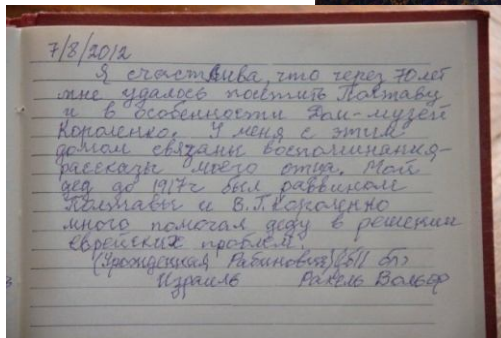 7/8/2012
Я счастлива, что через 70 лет
мне удалось посетить Полтаву
и в особенности Дом-музей
Короленко. У меня с этим
домом связаны воспоминания-
рассказы моего отца. Мой
дед до 1917г был раввином
Полтавы и В.Г. Короленко
много помогал деду в решении
еврейских проблем.
(Урожденная Рабинович)
Израиль Рахель Вольф